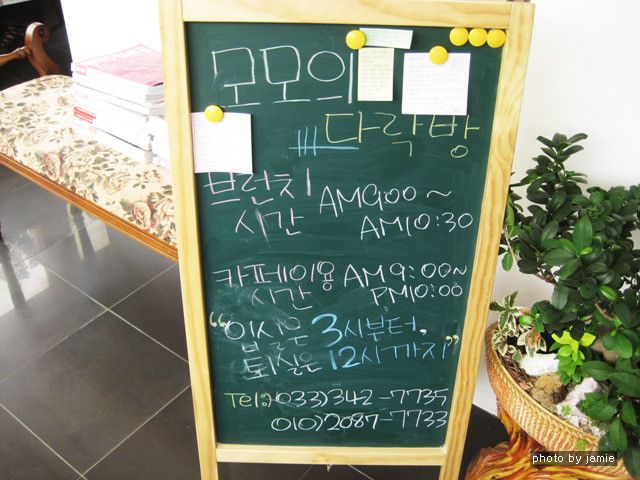 모모의
다락방
브런치
시간
AM9:00~
AM10:30
카페이용
시간
AM9:00~
PM10:00
"입실은 3시부터,
퇴실은 12시까지"
Tel:)033)342-7735
(010)2087-7733
photo by jamie